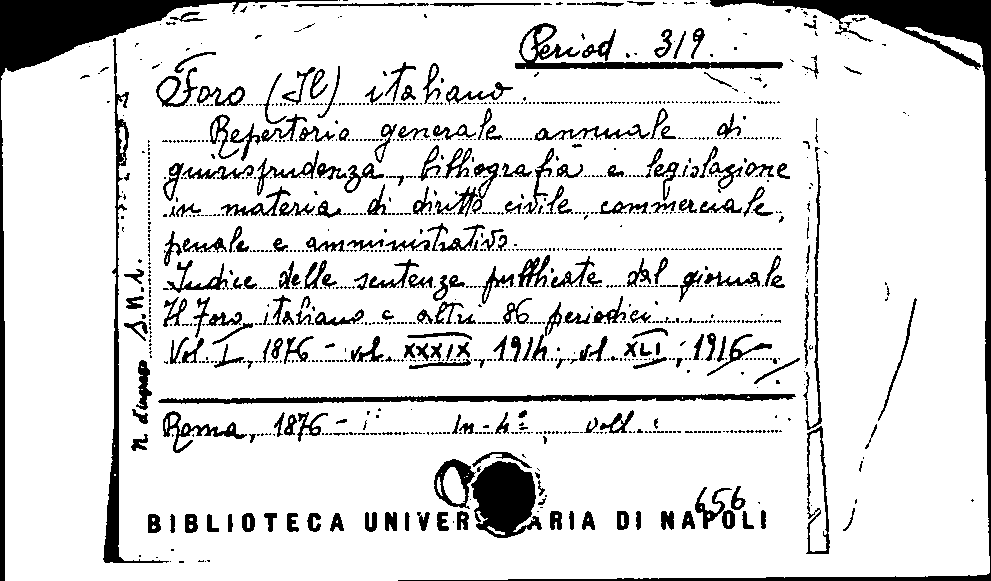 Period. 319.
Foro (Il) italiano.
Repertorio generale annuale di
giurisprudenza, bibliografia e legislazione
in materia di diritto civile, commerciale,
penale e amministrativo.
Indice delle sentenze pubblicate dal giornale
Il Foro italiano e altri 86 periodici...
Vol. I, 1876 - vol. XXXIX, 1914; vol. XLI, 1916-
Roma, 1876 - In-4º, voll.
N. d'ingresso S.N.i.
656
BIBLIOTECA UNIVER ARIA DI NAPOLI